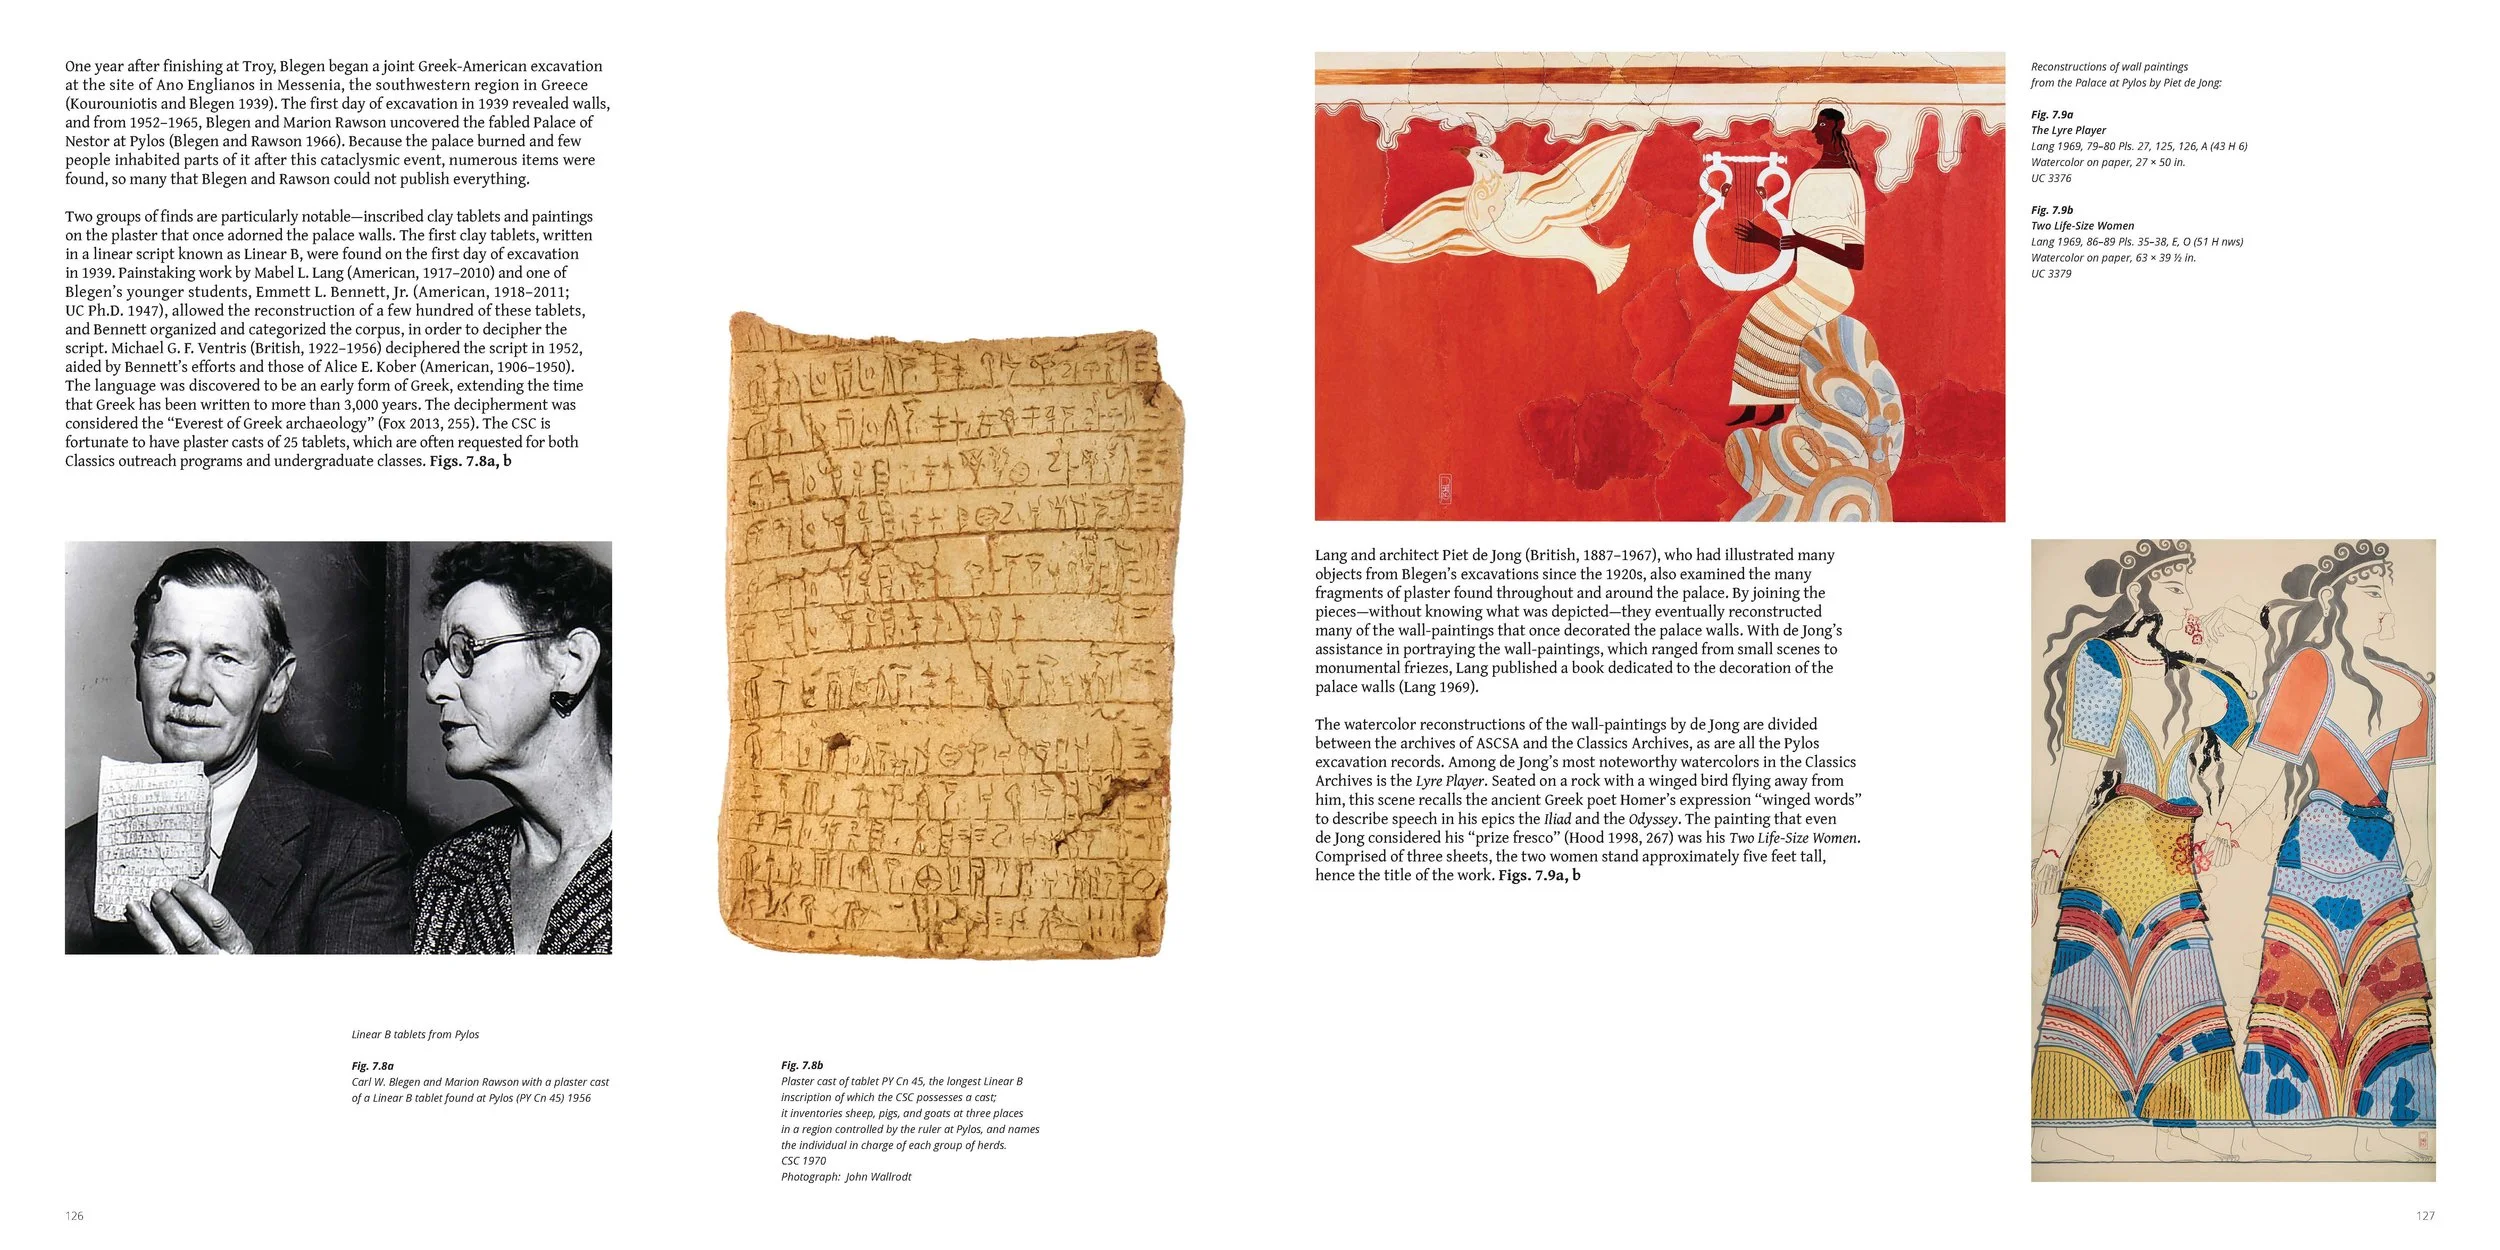 One year after finishing at Troy, Blegen began a joint Greek-American excavation
at the site of Ano Englianos in Messenia, the southwestern region in Greece
(Kourouniotis and Blegen 1939). The first day of excavation in 1939 revealed walls,
and from 1952–1965, Blegen and Marion Rawson uncovered the fabled Palace of
Nestor at Pylos (Blegen and Rawson 1966). Because the palace burned and few
people inhabited parts of it after this cataclysmic event, numerous items were
found, so many that Blegen and Rawson could not publish everything.
Two groups of finds are particularly notable—inscribed clay tablets and paintings
on the plaster that once adorned the palace walls. The first clay tablets, written
in a linear script known as Linear B, were found on the first day of excavation
in 1939. Painstaking work by Mabel L. Lang (American, 1917–2010) and one of
Blegen’s younger students, Emmett L. Bennett, Jr. (American, 1918–2011;
UC Ph.D. 1947), allowed the reconstruction of a few hundred of these tablets,
and Bennett organized and categorized the corpus, in order to decipher the
script. Michael G. F. Ventris (British, 1922–1956) deciphered the script in 1952,
aided by Bennett’s efforts and those of Alice E. Kober (American, 1906–1950).
The language was discovered to be an early form of Greek, extending the time
that Greek has been written to more than 3,000 years. The decipherment was
considered the “Everest of Greek archaeology” (Fox 2013, 255). The CSC is
fortunate to have plaster casts of 25 tablets, which are often requested for both
Classics outreach programs and undergraduate classes. Figs. 7.8a, b
Linear B tablets from Pylos
Fig. 7.8a
Carl W. Blegen and Marion Rawson with a plaster cast
of a Linear B tablet found at Pylos (PY Cn 45) 1956
Fig. 7.8b
Plaster cast of tablet PY Cn 45, the longest Linear B
inscription of which the CSC possesses a cast;
it inventories sheep, pigs, and goats at three places
in a region controlled by the ruler at Pylos, and names
the individual in charge of each group of herds.
CSC 1970
Photograph: John Wallrodt
126
Reconstructions of wall paintings
from the Palace at Pylos by Piet de Jong:
Fig. 7.9a
The Lyre Player
Lang 1969, 79–80 Pls. 27, 125, 126, A (43 H 6)
Watercolor on paper, 27 × 50 in.
UC 3376
Fig. 7.9b
Two Life-Size Women
Lang 1969, 86–89 Pls. 35–38, E, O (51 H nws)
Watercolor on paper, 63 × 39 ½ in.
UC 3379
Lang and architect Piet de Jong (British, 1887–1967), who had illustrated many
objects from Blegen’s excavations since the 1920s, also examined the many
fragments of plaster found throughout and around the palace. By joining the
pieces—without knowing what was depicted—they eventually reconstructed
many of the wall-paintings that once decorated the palace walls. With de Jong’s
assistance in portraying the wall-paintings, which ranged from small scenes to
monumental friezes, Lang published a book dedicated to the decoration of the
palace walls (Lang 1969).
The watercolor reconstructions of the wall-paintings by de Jong are divided
between the archives of ASCSA and the Classics Archives, as are all the Pylos
excavation records. Among de Jong’s most noteworthy watercolors in the Classics
Archives is the Lyre Player. Seated on a rock with a winged bird flying away from
him, this scene recalls the ancient Greek poet Homer’s expression “winged words”
to describe speech in his epics the Iliad and the Odyssey. The painting that even
de Jong considered his “prize fresco” (Hood 1998, 267) was his Two Life-Size Women.
Comprised of three sheets, the two women stand approximately five feet tall,
hence the title of the work. Figs. 7.9a, b
127